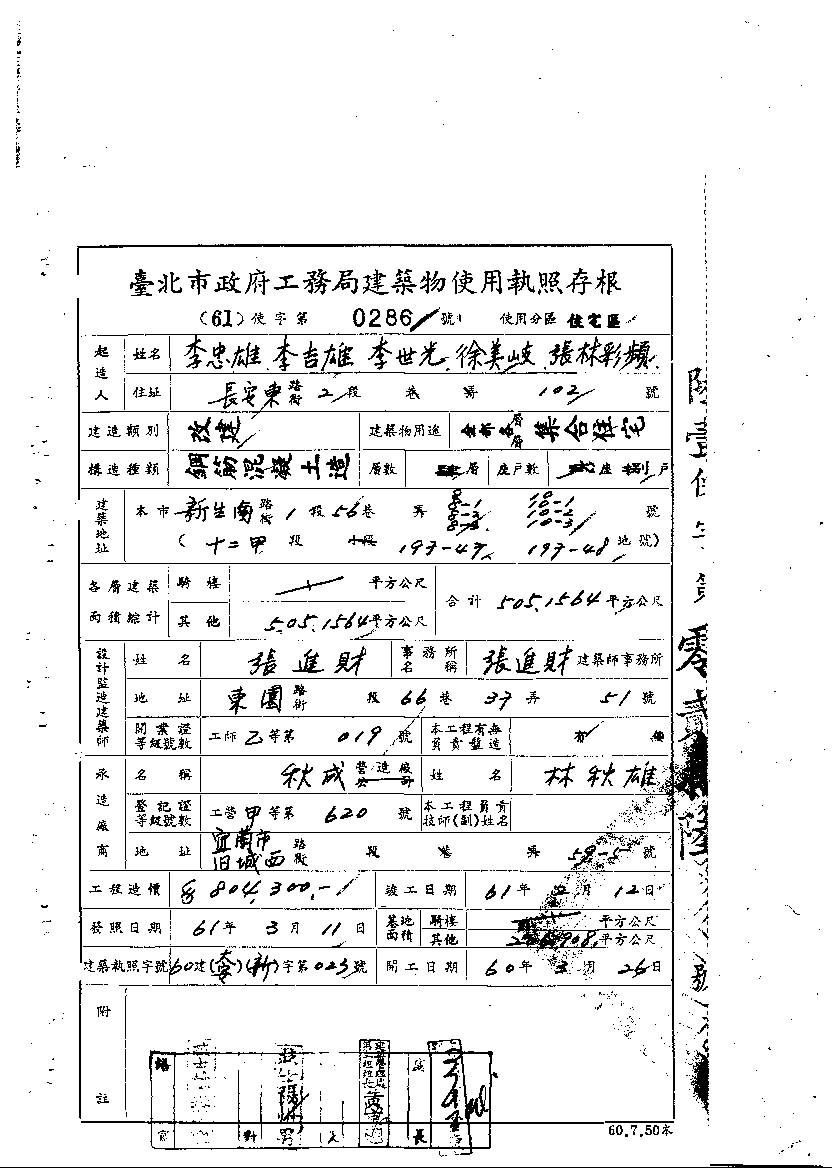 臺北市政府工務局建築物使用執照存根
（61）使字第 0286 號 使用分區 住宅區
起造人 姓名 李忠雄 李吉雄 李世光 徐美岐 張林彩蘋
住址 長安東路街 2 段 巷 弄 102 號
建造類別 改建 建築物用途 全部各層 集合住宅
構造種類 鋼筋混凝土造 層數 層 座戶數 座 捌戶
建築地址 本市 新生南路街 1 段 56 巷 弄 8-1 8-2 8-3 10-1 10-2 10-3 號
（十二甲 段 小段 197-47 197-48 地號）
各層建築面積綜計 騎樓 平方公尺
其他 505.1564 平方公尺 合計 505.1564 平方公尺
設計監造建築師 姓名 張進財 事務所名稱 張進財 建築師事務所
地址 東園路街 段 66 巷 37 弄 51 號
開業證等級號數 工師乙等第 019 號 本工程有無負責監造 有
承造廠商 名稱 秋成 營造廠 姓名 林秋雄
登記證等級號數 工營甲等第 620 號 本工程負責技師(副)姓名
地址 宜蘭市旧城西路街 段 巷 弄 59-5 號
工程造價 804,300.- 竣工日期 61 年 2 月 12 日
發照日期 61 年 3 月 11 日 基地面積 騎樓 平方公尺
其他 平方公尺
建築執照字號 60建(大安)(新)字第 023 號 開工日期 60 年 3 月 26 日
附註
60.7.50本